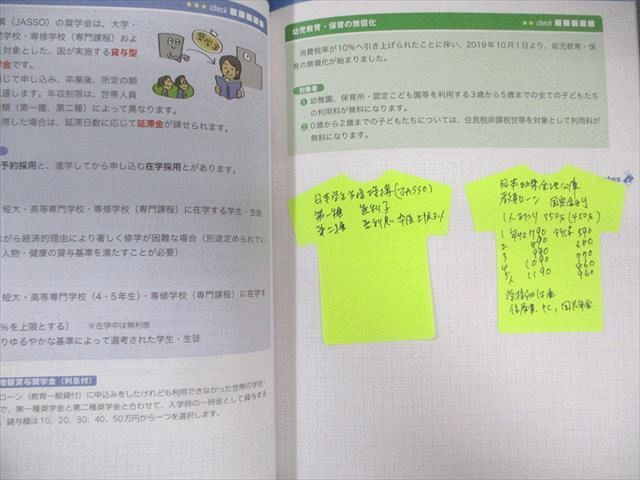 ★★★ check
講（JASSO）の奨学金は、大学・
門学校・専修学校（専門課程）およ
対象とした、国が実施する貸与型
学金です。
じて申し込み、卒業後、所定の期
還します。年収制限は、世帯人員
類（第一種、第二種）によって異なります。
滞した場合は、延滞日数に応じて延滞金が課せられます。
奨学金
予約採用と、進学してから申し込む在学採用とがあります。
短大・高等専門学校・専修学校（専門課程）に在学する学生・生徒
ながら経済的理由により著しく修学が困難な場合（別途定められてい
人物・健康の貸与基準を満たすことが必要）
短大・高等専門学校（4・5年生）・専修学校（専門課程）に在学す
％を上限とする） ※在学中は無利息
りゆるやかな基準によって選考された学生・生徒
増額貸与奨学金（利息付）
ローン（教育一般貸付）に申込みをしたけれども利用できなかった世帯の学生・
で、第一種奨学金と第二種奨学金と合わせて、入学時の一時金として貸与する
貸与額は10、20、30、40、50万円から一つを選択します。
幼児教育・保育の無償化
★★ check
消費税率が10％へ引き上げられたことに伴い、2019年10月1日より、幼児教育・保
育の無償化が始まりました。
対象者
❶ 幼稚園、保育所・認定こども園等を利用する3歳から5歳までの全ての子どもたち
の利用料が無料になります。
❷ 0歳から2歳までの子どもたちについては、住民税非課税世帯を対象として利用料が
無料になります。
日本学生支援機構（JASSO）
第一種 無利子
第二種 年利上限3%
日本政策金融公庫
教育ローン 固定金利
1人あたり 350万（450万）
1 年収 790 590
2 890 680
3 990 770
4 1090 860
5人 1190 960